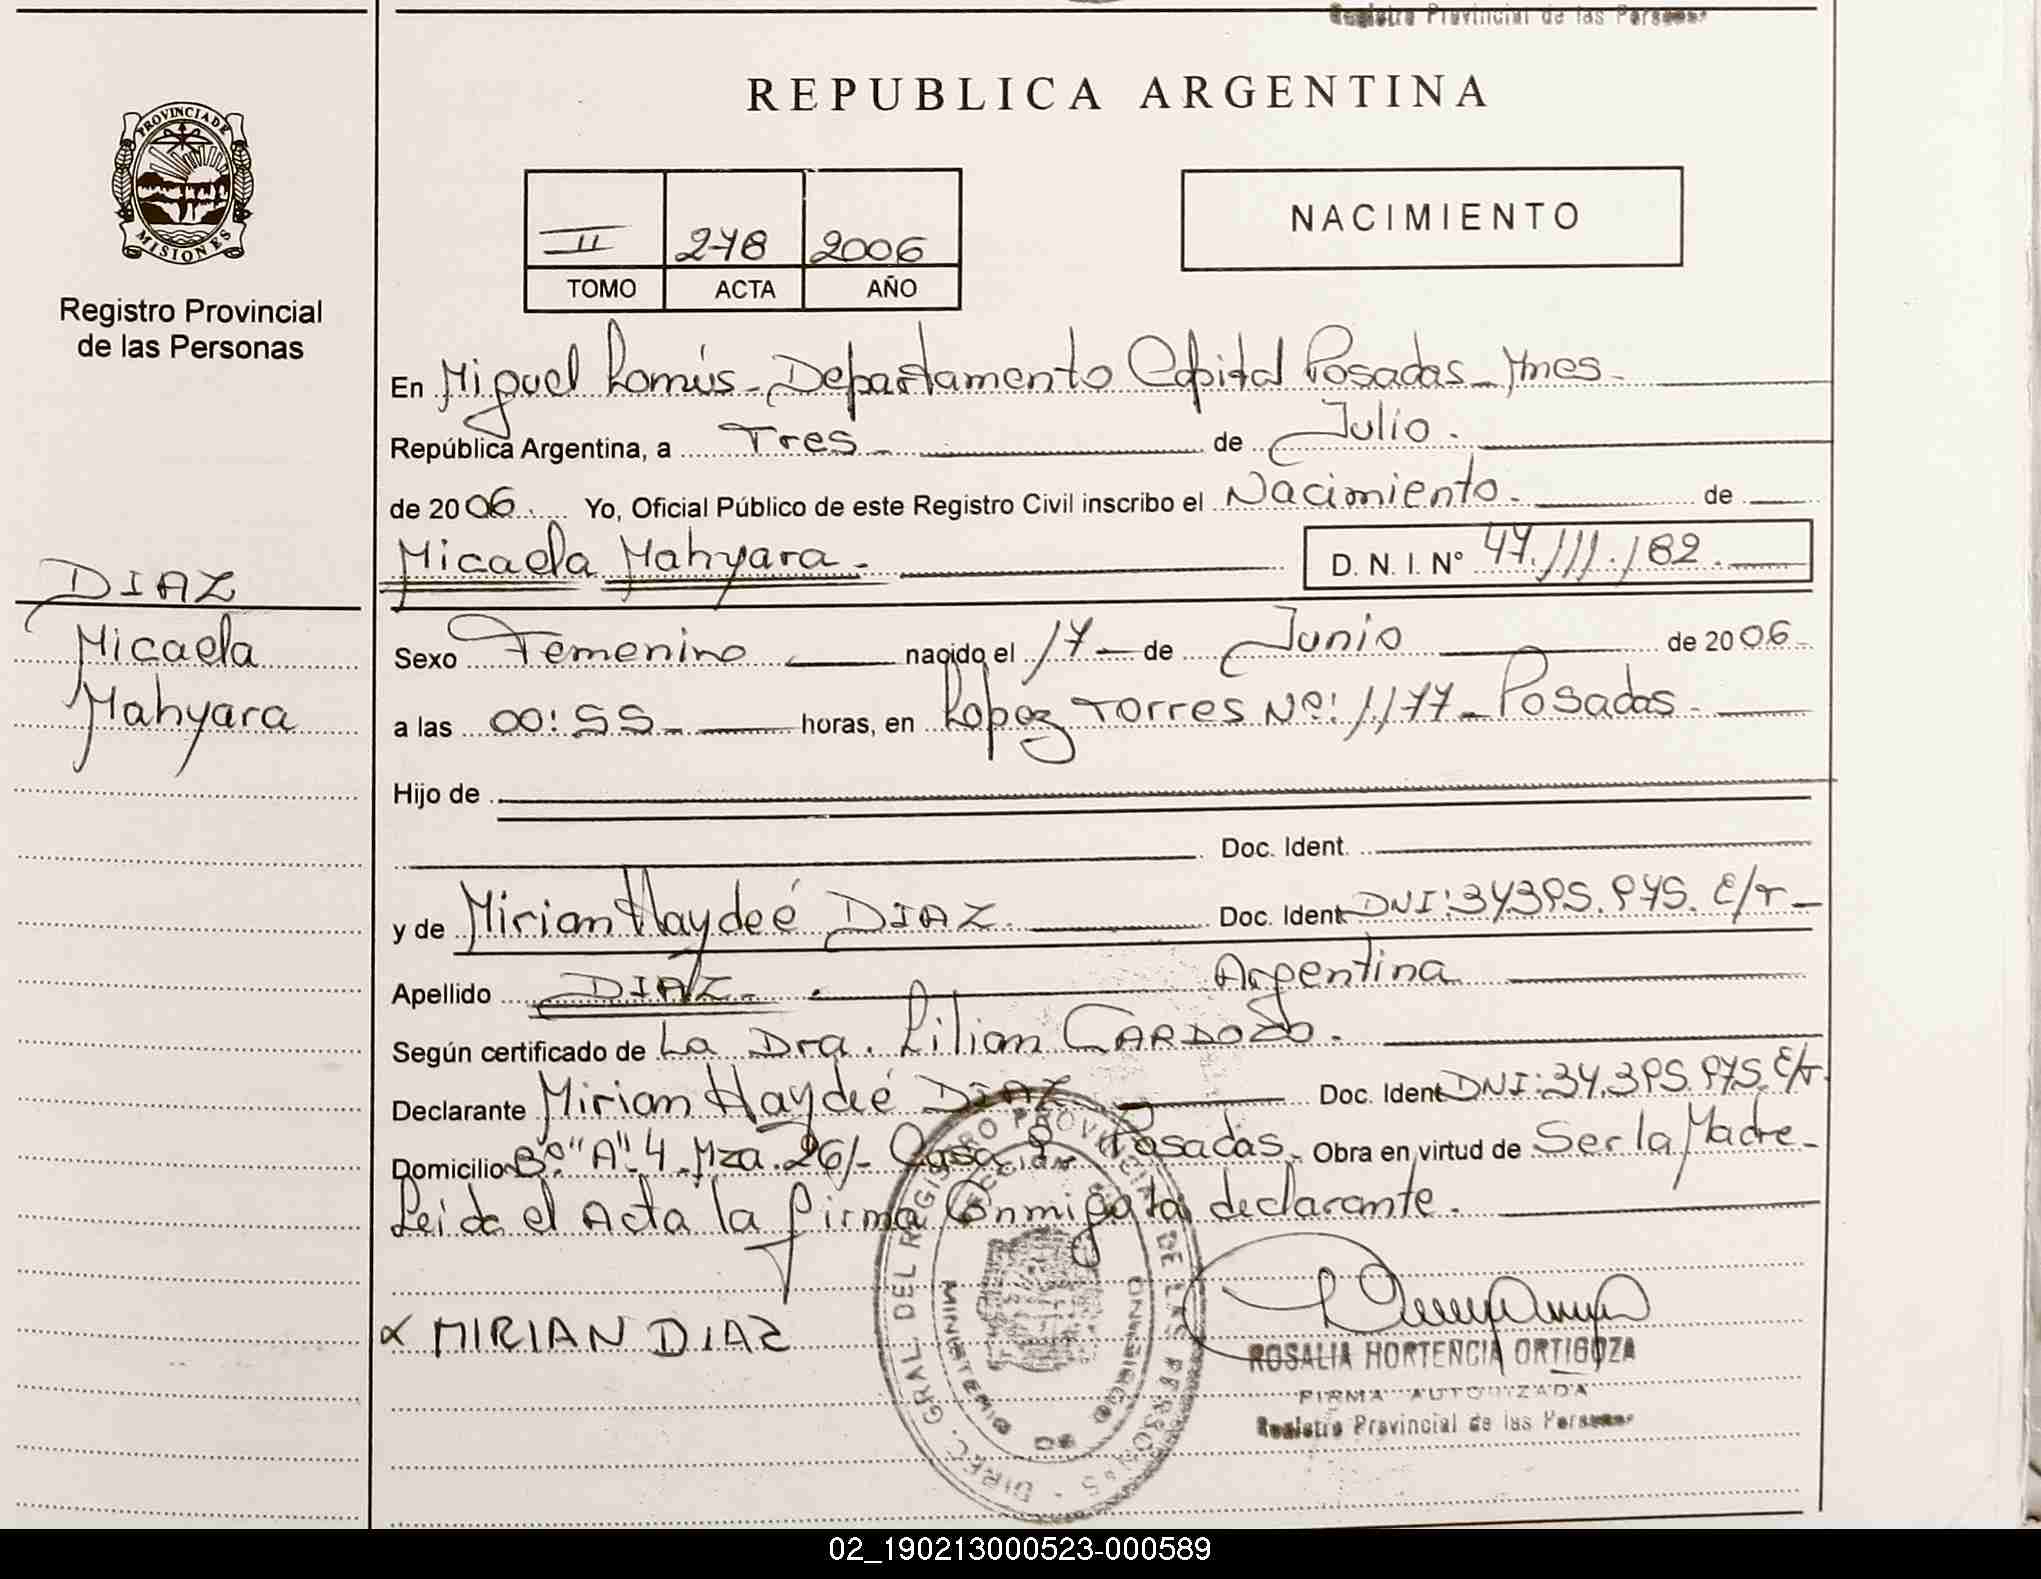 Registro Provincial de las Personas
REPUBLICA ARGENTINA
PROVINCIA DE
MISIONES
Registro Provincial
de las Personas
II 278 2006
TOMO ACTA AÑO
NACIMIENTO
En Miguel Lanús - Departamento Capital Posadas - Mnes -
República Argentina, a Tres - de Julio .
de 2006. Yo, Oficial Público de este Registro Civil inscribo el Nacimiento - de
Micaela Mahyara - D. N. I. Nº 47.111.182.
DIAZ
Micaela
Mahyara
Sexo Femenino nacido el 17 - de Junio de 2006 -
a las 00:55 - horas, en Lopez Torres Nº: 1,177 - Posadas -
Hijo de
Doc. Ident.
y de Mirian Haydeé DIAZ. Doc. Ident. DNI: 34395.975. E/T -
Apellido DIAZ - . Argentina
Según certificado de La Dra. Lilian CARDOZO.
Declarante Mirian Haydeé DIAZ Doc. Ident. DNI: 34.395.975. E/T.
Domicilio Bº "A" 4 Mza. 26/- Casa 9 - Posadas - Obra en virtud de Ser la Madre -
Leida el Acta la firma Conmigo la declarante.
MIRIAN DIAZ
DIREC. GRAL DEL REGISTRO PROVINCIAL DE LAS PERSONAS
ROSALIA HORTENCIA ORTIGOZA
FIRMA AUTORIZADA
Registro Provincial de las Personas
02_190213000523-000589